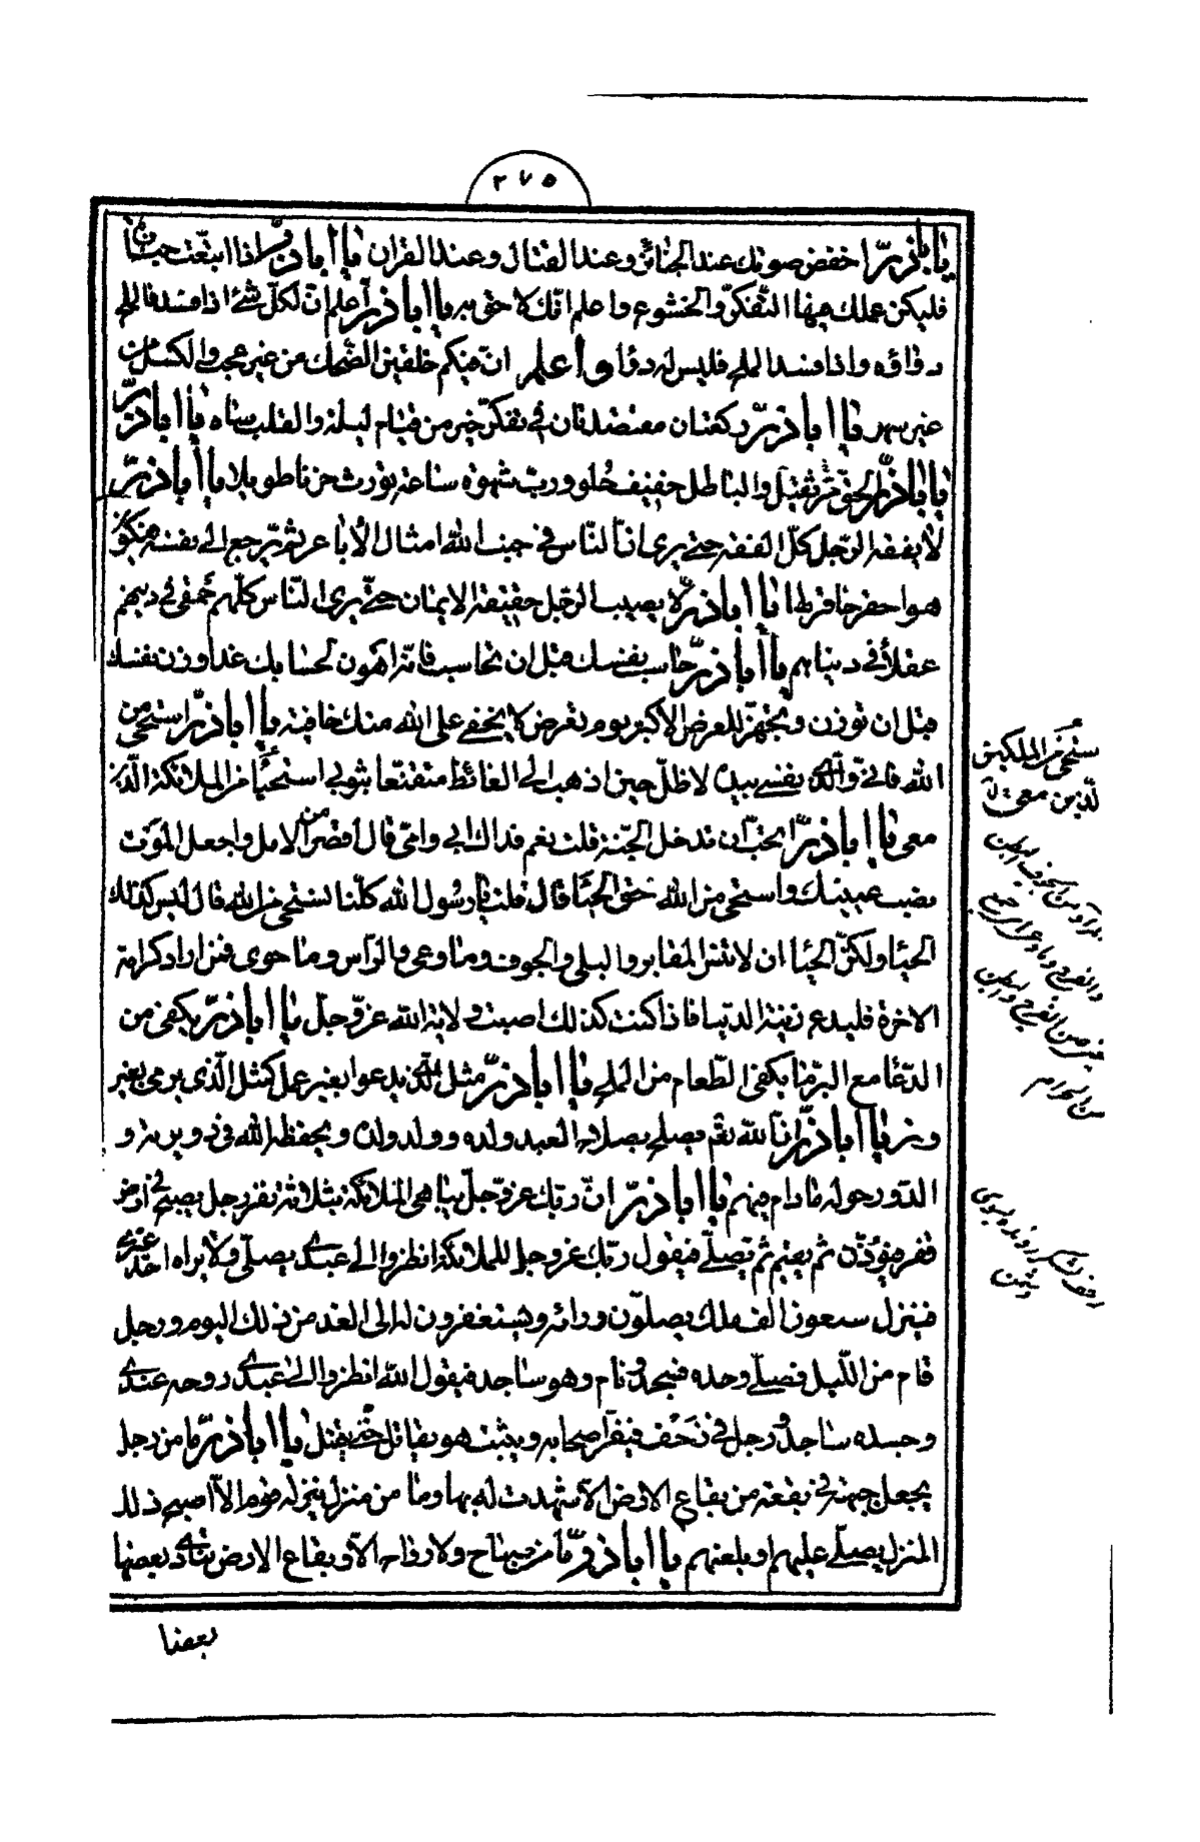 ٢٧٥
يا اباذرّ اخفض صوتك عند الجنائز وعند القتال وعند القران يا اباذرّ اذا اتبعت جنازة
فليكن عملك فيها التّفكّر والخشوع واعلم انّك لاحق به يا اباذرّ اعلم انّ لكلّ شئ اذا فسد فالملح
دواؤه واذا فسد الملح فليس له دواء واعلم انّ فيكم خلقين الضّحك من غير عجب والكسل من
غير سهر يا اباذرّ ركعتان مقتصدتان في تفكّر خير من قيام ليلة والقلب ساه يا اباذرّ
يا اباذرّ الحقّ مرّ ثقيل والباطل خفيف حلو وربّ شهوة ساعة تورث حزنا طويلا يا اباذرّ
لا يفقه الرّجل كلّ الفقه حتى يرى النّاس في جنب الله امثال الأباعر ثم يرجع الى نفسه فيكون
هو احقر حاقر لها يا اباذرّ لا يصيب الرّجل حقيقة الايمان حتّى يرى النّاس كلّهم حمقى في دينهم
عقلاء في دنياهم يا اباذرّ حاسب نفسك قبل ان تحاسب فانّه اهون لحسابك غدا وزن نفسك
قبل ان توزن وتجهّز للعرض الاكبر يوم تعرض لا يخفى على الله منك خافية يا اباذرّ استحى من
الله فانّي والّذي نفسي بيده لا ظلّ حين اذهب الى الغائط متقنّعا بثوبي استحياء من الملائكة الّذين
معي يا اباذرّ اتحبّ ان تدخل الجنّة قلت نعم فداك ابي وامّي قال اقصر من الامل واجعل الموت
نصب عينيك واستحى من الله حقّ الحياء قال قلت يا رسول الله كلّنا نستحى من الله قال ليس كذلك
الحياء ولكنّ الحياء ان لا تنسى المقابر والبلى والجوف وما وعى والرّاس وما حوى فمن اراد كرامة
الاخرة فليدع زينة الدّنيا فاذا كنت كذلك اصبت ولاية الله عزّ وجلّ يا اباذرّ يكفى من
الدّعاء مع البرّ ما يكفى الطّعام من الملح يا اباذرّ مثل الّذي يدعو بغير عمل كمثل الّذي يرمى بغير
وتر يا اباذرّ انّ الله تعم يصلح بصلاح العبد ولده وولد ولده ويحفظه الله في دويرته و
الدّور حوله ما دام فيهم يا اباذرّ انّ ربّك عزّ وجلّ يباهى الملائكة بثلاثة نفر رجل يصبح في ارض
قفر فيؤذّن ثم يقيم ثم يصلّي فيقول ربّك عز وجل للملائكة انظروا الى عبدي يصلّي ولا يراه احد غيري
فينزل سبعون الف ملك يصلّون ورائه ويستغفرون له الى الغد من ذلك اليوم ورجل
قام من اللّيل فصلّى وحده فسجد ونام وهو ساجد فيقول الله انظروا الى عبدي روحه عندي
وجسده ساجد ورجل في زحف فيفرّ اصحابه ويثبت هو يقاتل حتّى يقتل يا اباذرّ ما من رجل
يجعل جبهته في بقعة من بقاع الارض الاّ شهدت له بها وما من منزل ينزله قوم الاّ اصبح ذلك
المنزل يصلّي عليهم او يلعنهم يا اباذرّ ما من صباح ولا رواح الاّ وبقاع الارض ينادي بعضها
بعضا
ستحى من الملكين
الّذين معي